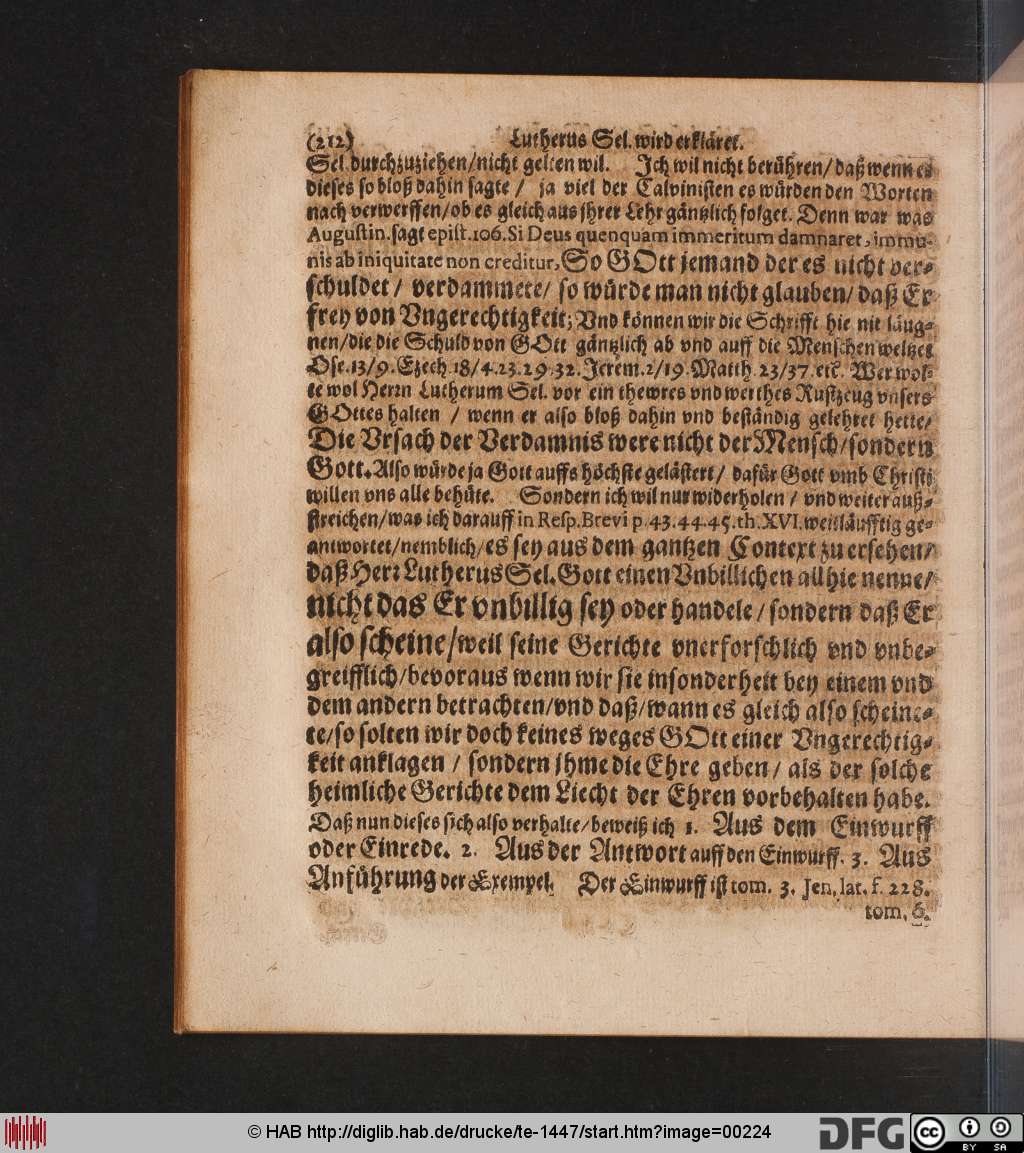 (212) Lutherus Sel. wird erkläret.
Sel. durchzuziehen/nicht gelten wil. Ich wil nicht berühren/daß wenn es
dieses so bloß dahin sagte / ja viel der Calvinisten es würden den Worten
nach verwerffen/ob es gleich aus jhrer Lehr gäntzlich folget. Denn war was
Augustin. sagt epist. 106. Si Deus quenquam immeritum damnaret, immu-
nis ab iniquitate non creditur, So GOtt jemand der es nicht ver-
schuldet / verdammete/ so würde man nicht glauben/ daß Er
frey von Vngerechtigkeit; Vnd können wir die Schrifft hie nit läug-
nen/die die Schuld von GOtt gäntzlich ab vnd auff die Menschen weltzet
Ose. 13/9. Ezech. 18/4.23.29.32. Jerem. 2/19. Matth. 23/37. etc. Wer wol-
te wol Herrn Lutherum Sel. vor ein thewres vnd werthes Rustzeug vnsers
GOttes halten / wenn er also bloß dahin vnd beständig gelehret hette/
Die Vrsach der Verdamnis were nicht der Mensch/sondern
Gott. Also würde ja Gott auffs höchste gelästert/ dafür Gott vmb Christi
willen vns alle behüte. Sondern ich wil nur widerholen / vnd weiter auß-
streichen/was ich darauff in Resp. Brevi p. 43.44.45. th. XVI. weitläufftig ge-
antwortet/nemblich/es sey aus dem gantzen Context zu ersehen/
daß Herr Lutherus Sel. Gott einen Vnbillichen allhie nenne/
nicht das Er vnbillig sey oder handele / sondern daß Er
also scheine/weil seine Gerichte vnerforschlich vnd vnbe-
greifflich/bevoraus wenn wir sie insonderheit bey einem vnd
dem andern betrachten/vnd daß/wann es gleich also scheine-
te/so solten wir doch keines weges GOtt einer Vngerechtig-
keit anklagen / sondern jhme die Ehre geben/ als der solche
heimliche Gerichte dem Liecht der Ehren vorbehalten habe.
Daß nun dieses sich also verhalte/beweiß ich 1. Aus dem Einwurff
oder Einrede. 2. Aus der Antwort auff den Einwurff. 3. Aus
Anführung der Exempel. Der Einwurff ist tom. 3. Jen. lat. f. 228.
tom. 6.
© HAB http://diglib.hab.de/drucke/te-1447/start.htm?image=00224
DFG
cc BY SA